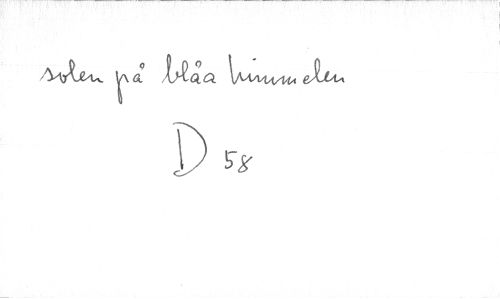 solen på blåa himmelen
D 58